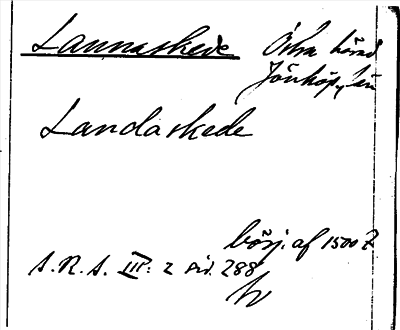 Lannaskede Östra härad
Jönköp. län
Landaskede
börj. af 1500 t
S.R.S. III: 2 sid. 288